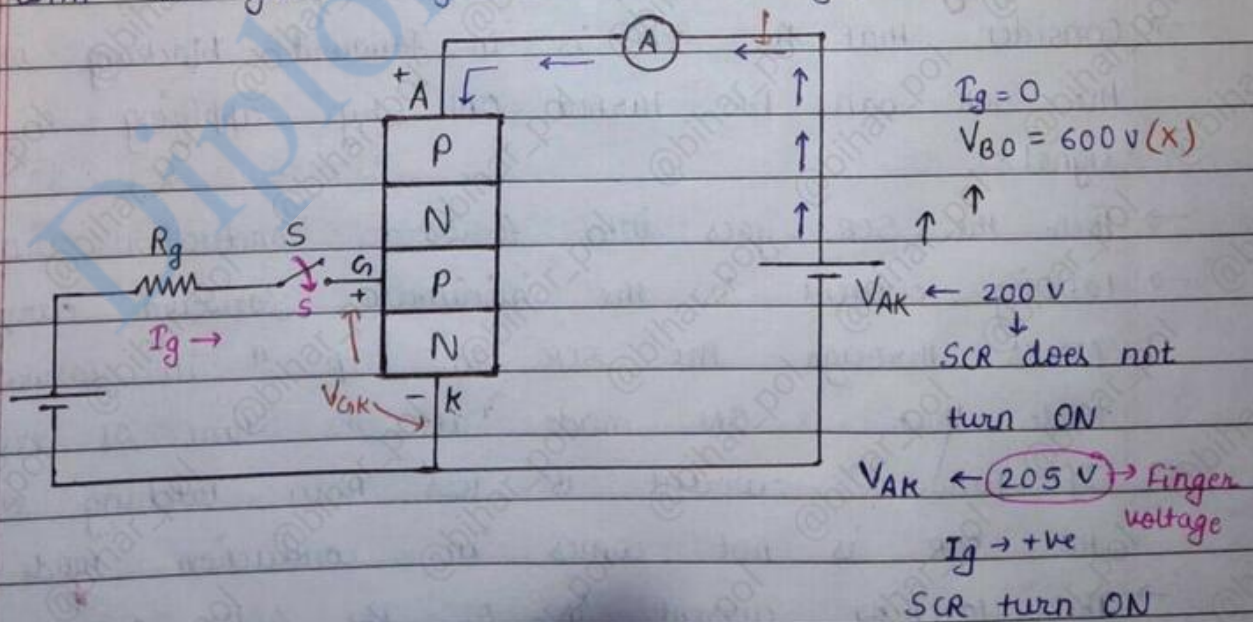 A
+
A
P
N
P
N
Rg
S
S
G
+
Ig →
VGK
- K
Ig = 0
VBO = 600 V (X)
VAK ← 200 V
SCR does not
turn ON
VAK ← 205 V → Finger
voltage
Ig → +ve
SCR turn ON
Diplo
@bihar_pol